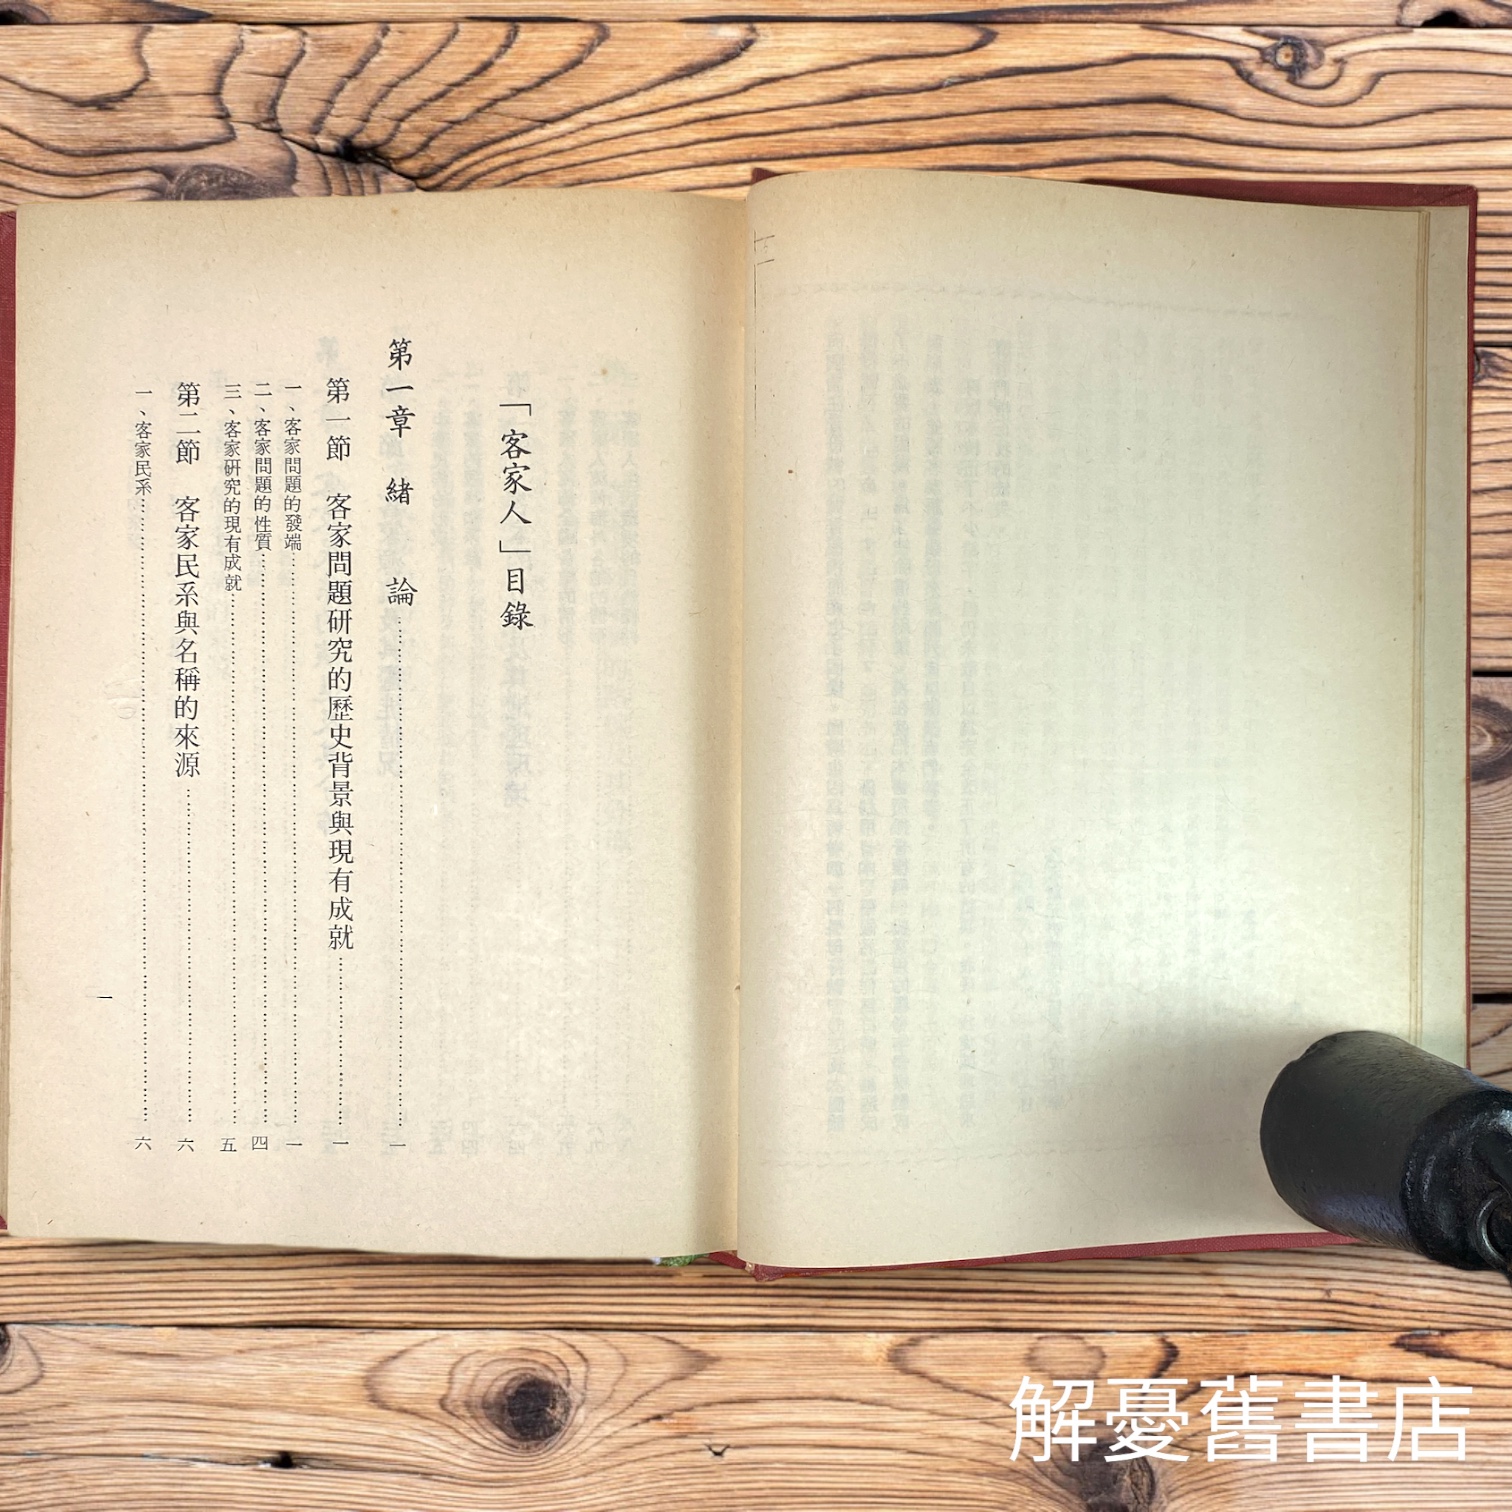 「客家人」目錄
第一章 緒 論…………一
第一節 客家問題研究的歷史背景與現有成就…………一
一、客家問題的發端…………一
二、客家問題的性質…………四
三、客家研究的現有成就…………五
第二節 客家民系與名稱的來源…………六
一、客家民系…………六
一
解憂舊書店